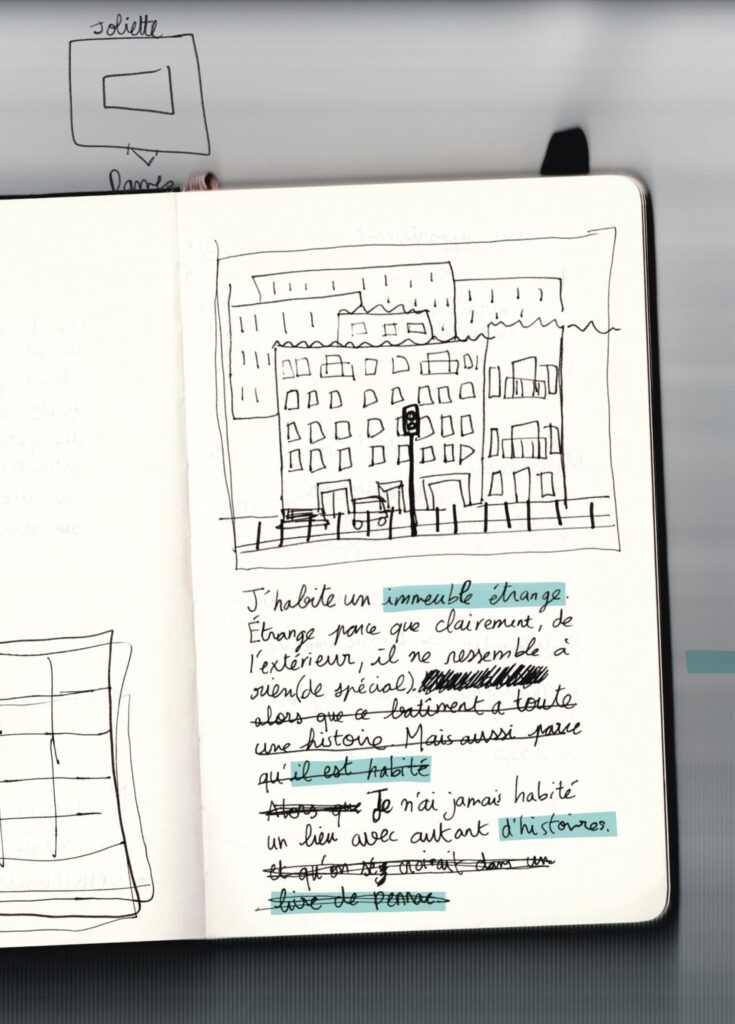 Joliette
Dames
J'habite un immeuble étrange.
Étrange parce que clairement, de
l'extérieur, il ne ressemble à
rien(de spécial).
alors que ce batîment a toute
une histoire. Mais aussi parce
qu'il est habité
Alors que Je n'ai jamais habité
un lieu avec autant d'histoires.
et qu'on s'y croirait dans un
livre de pennac.